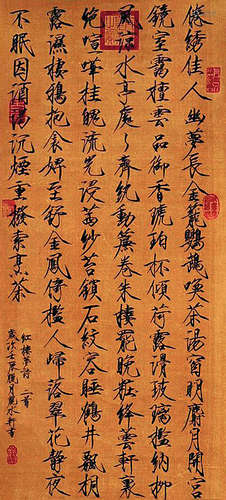 倦繡佳人幽夢長金籠鸚鵡喚茶湯窗明麝月開宮
鏡室靄檀雲品御香琥珀杯傾荷露滑玻璃檻納柳
風涼水亭處々齊紈動簾卷朱樓罷晚妝絳雲軒裏
絕喧嘩桂魄流光浸茜紗苔鎖石紋容睡鶴井飄桐
露濕棲鴉抱衾婢至舒金鳳倚檻人歸落翠花靜夜
不眠因酒渴沉煙重撥索烹茶
紅樓夢詩二首
歲次壬辰臘月水軒書